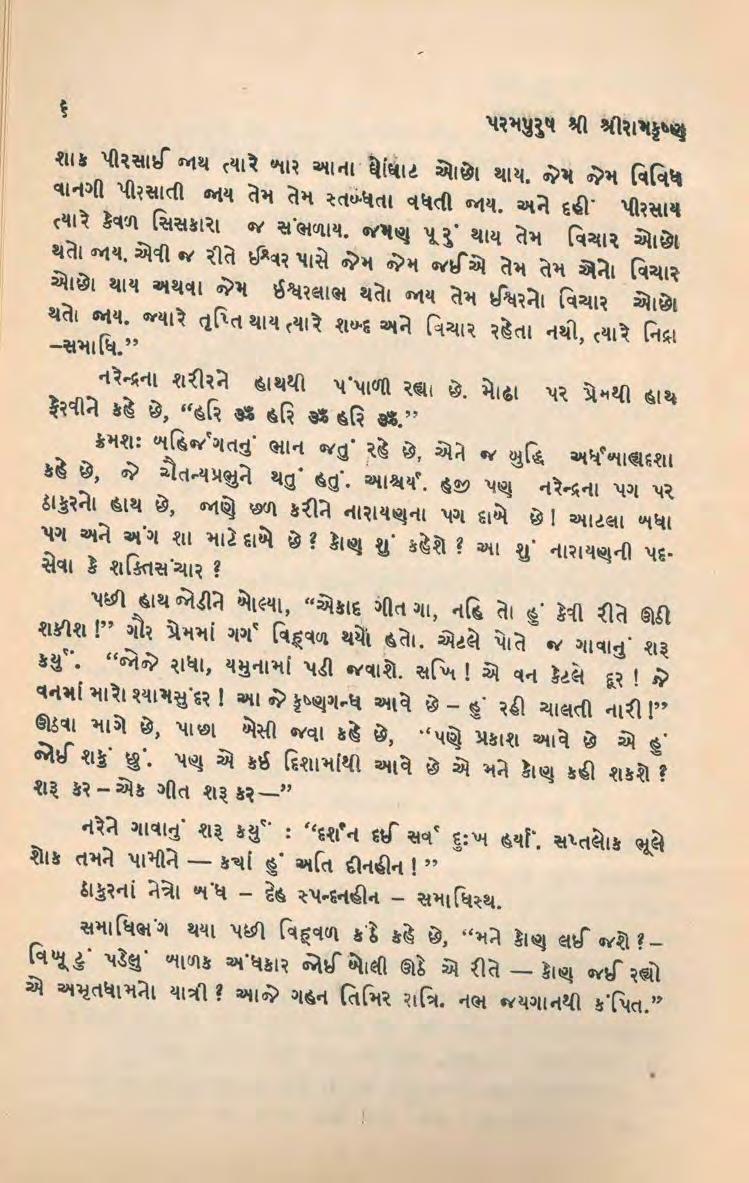 ૬
પરમપુરુષ શ્રી શ્રીરામકૃષ્ણ
શાક પીરસાઈ જાય ત્યારે બાર આના ઘોંઘાટ ઓછો થાય. જેમ જેમ વિવિધ
વાનગી પીરસાતી જાય તેમ તેમ સ્તબ્ધતા વધતી જાય. અને દહીં પીરસાય
ત્યારે કેવળ સિસકારા જ સંભળાય. જમણ પૂરું થાય તેમ વિચાર ઓછો
થતો જાય. એવી જ રીતે ઈશ્વર પાસે જેમ જેમ જઈએ તેમ તેમ એનો વિચાર
ઓછો થાય અથવા જેમ ઈશ્વરલાભ થતો જાય તેમ ઈશ્વરનો વિચાર ઓછો
થતો જાય. જ્યારે તૃપ્તિ થાય ત્યારે શબ્દ અને વિચાર રહેતા નથી, ત્યારે નિદ્રા
–સમાધિ.”
નરેન્દ્રના શરીરને હાથથી પંપાળી રહ્યા છે. મોઢા પર પ્રેમથી હાથ
ફેરવીને કહે છે, “હરિ ૐ હરિ ૐ હરિ ૐ.”
ક્રમશઃ બહિર્જગતનું ભાન જતું રહે છે, એને જ બુદ્ધિ અર્ધબાહ્યદશા
કહે છે, જે ચૈતન્યપ્રભુને થતું હતું. આશ્ચર્ય. હજી પણ નરેન્દ્રના પગ પર
ઠાકુરનો હાથ છે, જાણે છળ કરીને નારાયણના પગ દાબે છે! આટલા બધા
પગ અને અંગ શા માટે દાબે છે? કોણ શું કહેશે? આ શું નારાયણની પદ-
સેવા કે શક્તિસંચાર?
પછી હાથ જોડીને બોલ્યા, “એકાદ ગીત ગા, નહિ તો હું કેવી રીતે ઊઠી
શકીશ!” ગૌર પ્રેમમાં ગર્ગ વિહ્વળ થયો હતો. એટલે પોતે જ ગાવાનું શરૂ
કર્યું. “જોજે રાધા, યમુનામાં પડી જવાશે. સખિ! એ વન કેટલે દૂર! જે
વનમાં મારો શ્યામસુંદર! આ જે કૃષ્ણગન્ધ આવે છે – હું રહી ચાલતી નારી!”
ઊઠવા માગે છે, પાછા બેસી જવા કહે છે, “પણે પ્રકાશ આવે છે એ હું
જોઈ શકું છું. પણ એ કઈ દિશામાંથી આવે છે એ મને કોણ કહી શકશે?
શરૂ કર – એક ગીત શરૂ કર—”
નરેને ગાવાનું શરૂ કર્યું : “દર્શન દઈ સર્વ દુઃખ હર્યાં. સપ્તલોક ભૂલે
શોક તમને પામીને — ક્યાં હું અતિ દીનહીન!”
ઠાકુરનાં નેત્રો બંધ – દેહ સ્પન્દનહીન – સમાધિસ્થ.
સમાધિભંગ થયા પછી વિહ્વળ કંઠે કહે છે, “મને કોણ લઈ જશે?–
વિખૂટું પડેલું બાળક અંધકાર જોઈ બોલી ઊઠે એ રીતે — કોણ જઈ રહ્યો
એ અમૃતધામનો યાત્રી? આજે ગહન તિમિર રાત્રિ. નભ જયગાનથી કંપિત.”